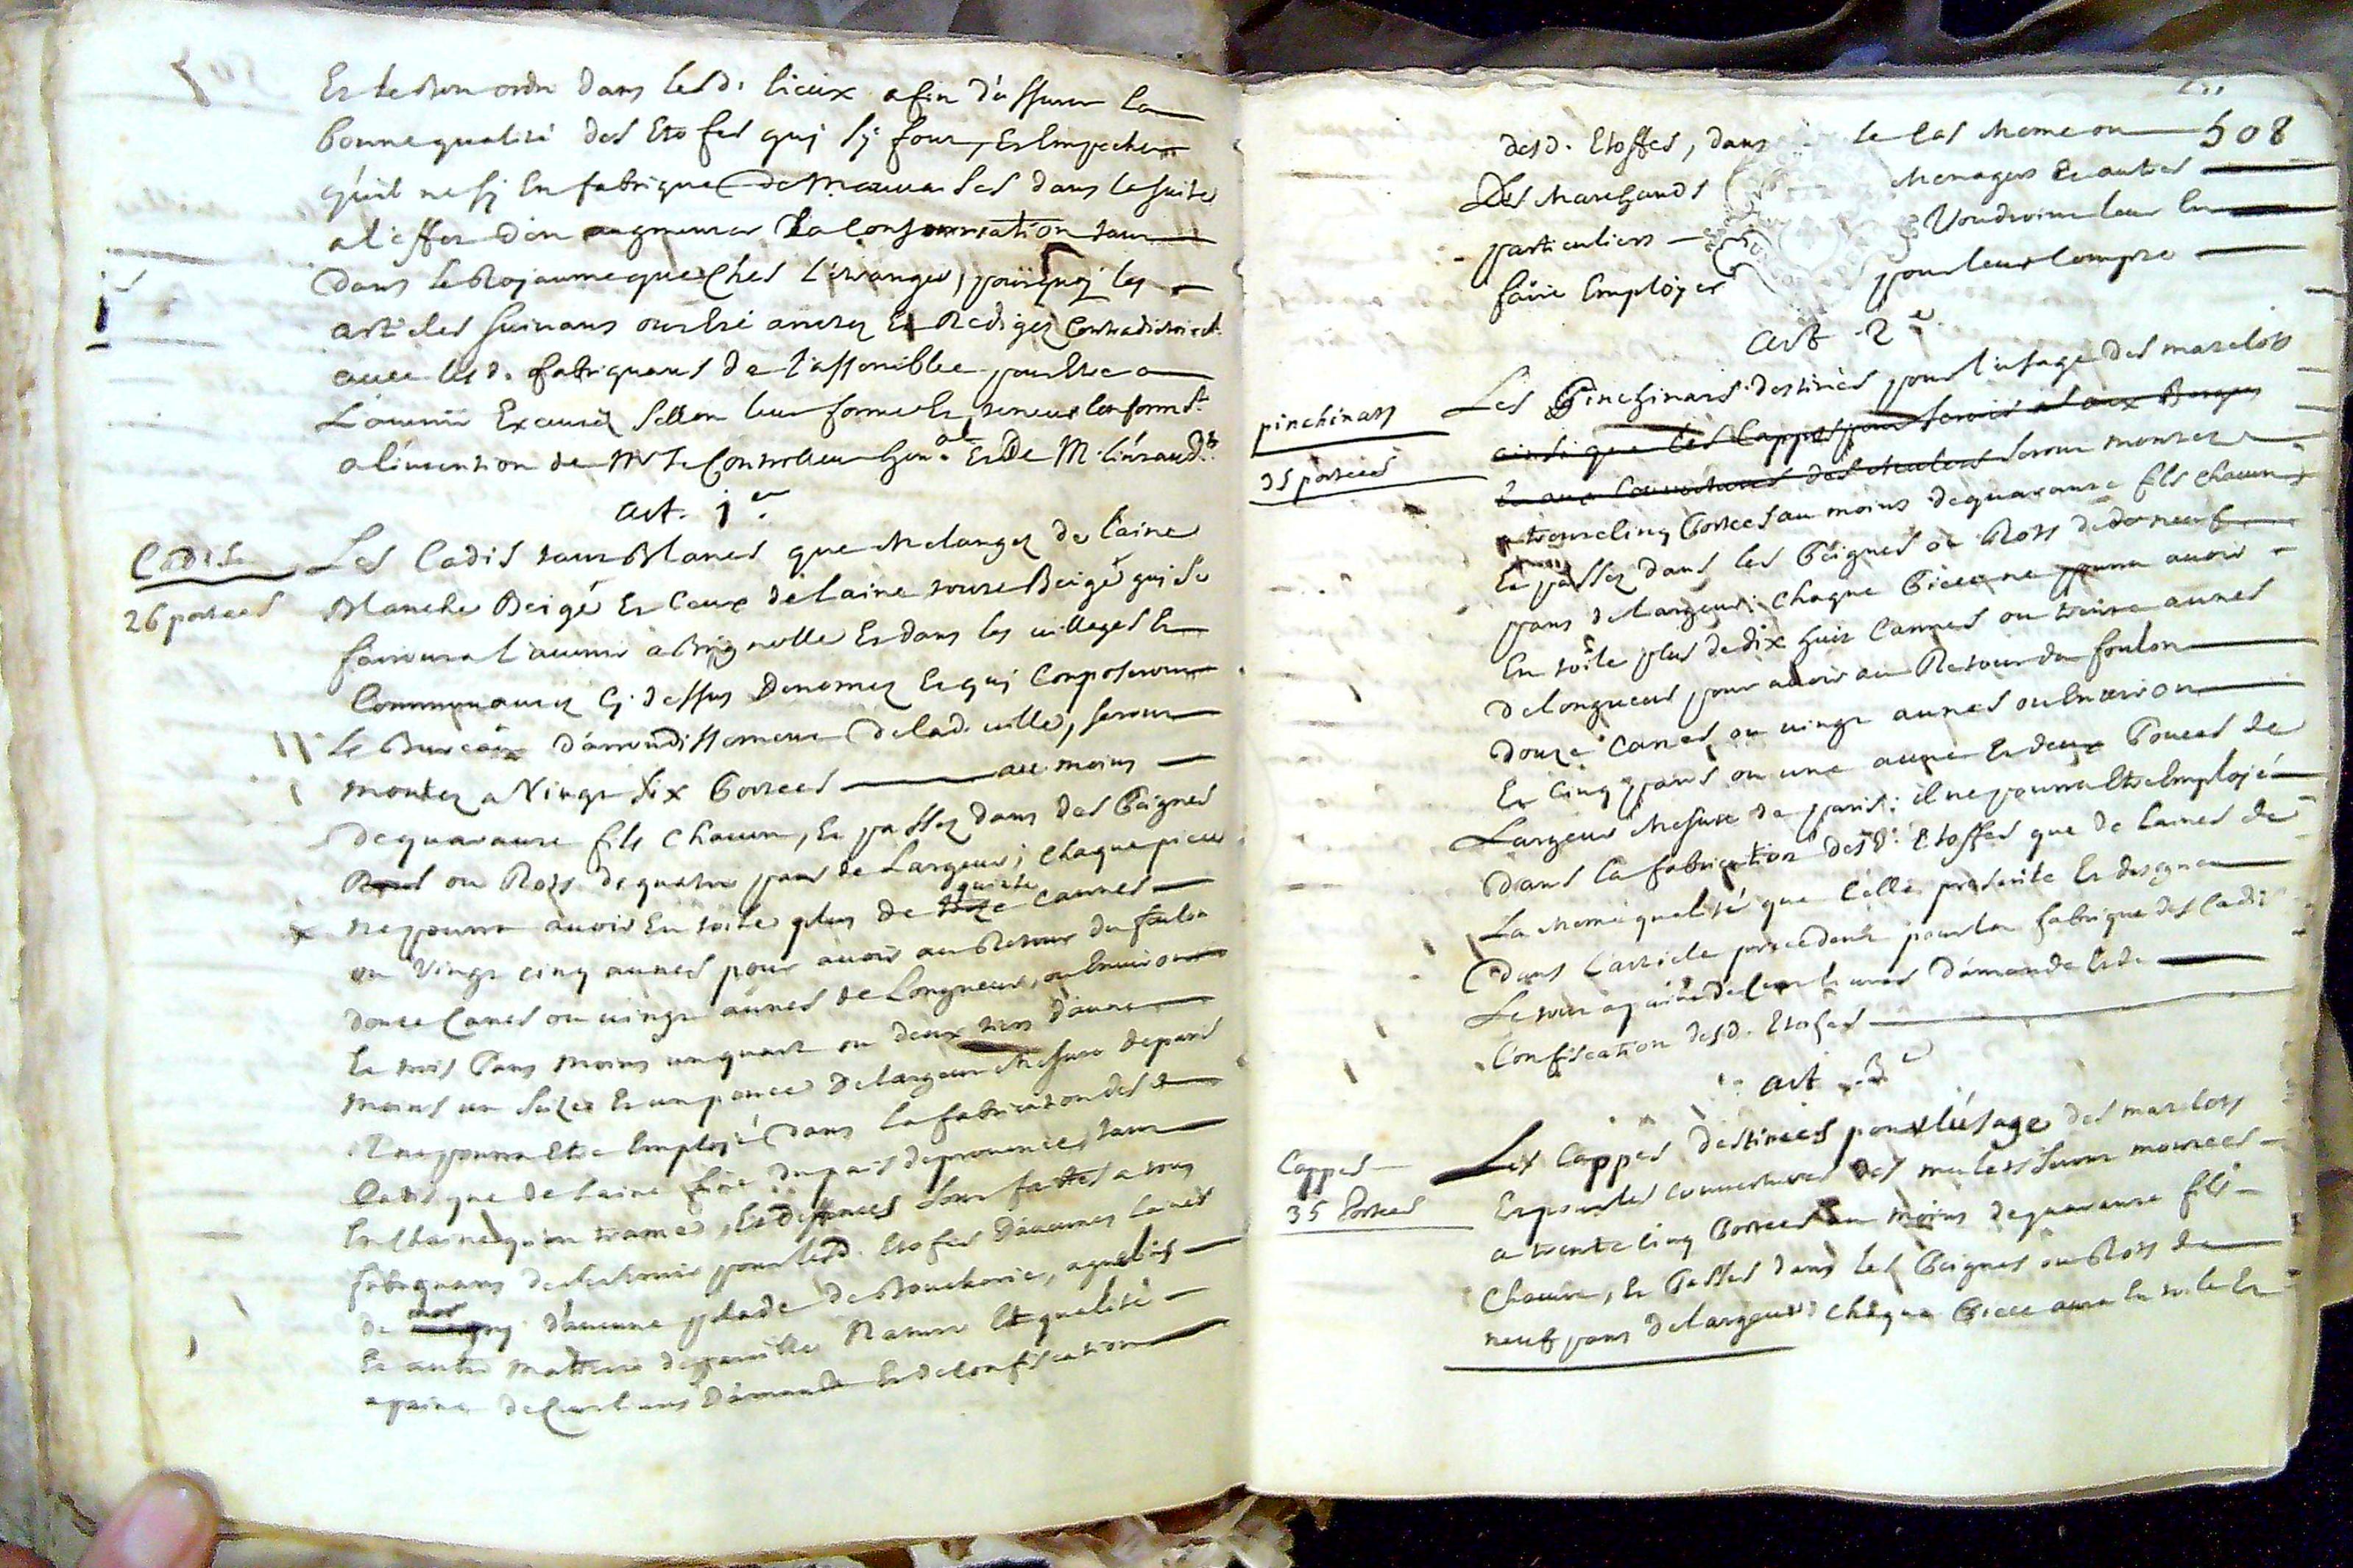 Et le bon ordre dans lesd. lieux afin d'assurer la
bonne qualité des Etofes quj sj font, Et Empecher
qu'il ne sj En fabrique de mauvaises dans la suite
a l'effet d'en augmenter La Consommation tant
dans le Royaume que Ches l'étranger, pourquoj les
articles suivans ont Eté arretez Et Redigez Contradictoiret.
avec lesd. fabriquans de l'assemblée pour Etre a
L'avenir Executéz sellon leur forme Et teneur Conformt.
a l'intention de Mr Le Controlleur Gen.al Et De M. l'intendt.
art. 1er.
Cadis
26 portees
Les Cadis tant Blancs que Melangez de laine
Blanche Beigé Et Ceux de laine toute Beigé quj se
fairont a l'avenir a Brignolle Et dans les villages Et
Communautez Cj. dessus Denomez Et quj Composeront
Le Bureaux d'arrondissement de lad. ville, seront
montez a Vingt six Portees au moins
de quarante fils Chacun, Et passez dans des Peignes
ou Rots de quatre pans de Largeur; Chaque piece
ne pourra avoir En toile plus de quinze Cannes
ou Vingt cinq aunes pour avoir au Retour du foulon
douze Canes ou vingt aunes de Longueur, ou Environ
Et trois Pans moins un quart ou deux tiers d'aune
moins un seize Et un pouce de largeur Mesure de paris
Il ne pourra Etre Emplojé dans la fabrication desd.
Cadis que de laine fine du païs de provence, tant
En Chaine qu'en trame, Et Deffences sont faittes a tous
fabriquans de se servir pour lesd. Etofes d'aucunes laines
de d'aucune plade de Boucherie, agnelins
Et autre matiere de pareille Nature Et qualité
a peine de Cent livres D'amande Et de Confiscation
508
desd. Etoffes, dans le Cas meme ou
Des Marchands Menagers Et autres
particuliers Voudroint leur En
faire Emploÿer pour leur Compte
art. 2e.
pinchinats
35 portees
Les Pinchinats destinés pour l'usage des matelots
ainsi que les Cappes pour servir aux Bergers
Et aux Couvertures des Mulets seront montez
a trente Cinq Portees au moins de quarante fils Chacun
Et passez dans les Peignes ou Rots de neuf
pans de largeur: Chaque Piece ne pourra avoir
En toile plus de dix huit Cannes ou trente aunes
de longueur pour avoir au Retour du foulon
Douze Canes ou vingt aunes ou Environ
Et Cinq pans ou une aune Et deux Pouces de
Largeur Mesure de paris: il ne pourra Etre Emplojé
Dans la fabrication desd. Etoffes que de laines de
La meme qualité que Celle prescrite Et designe
Dans l'article precedent pour la fabrique des Cadis
Le tout a peine de Cent livres D'amande Et de
Confiscation desd. Etofes
art. 3e
Cappes
35 Portees
Les Cappes Destinées pour l'usage des matelots
Et pour les Couvertures des mulets seront montees
a trente Cinq Portees au moins de quarante fils
Chacun, Et Passes dans les Peignes ou Rots de
neuf pans de largeur: Chaque Piece aura En toile Et